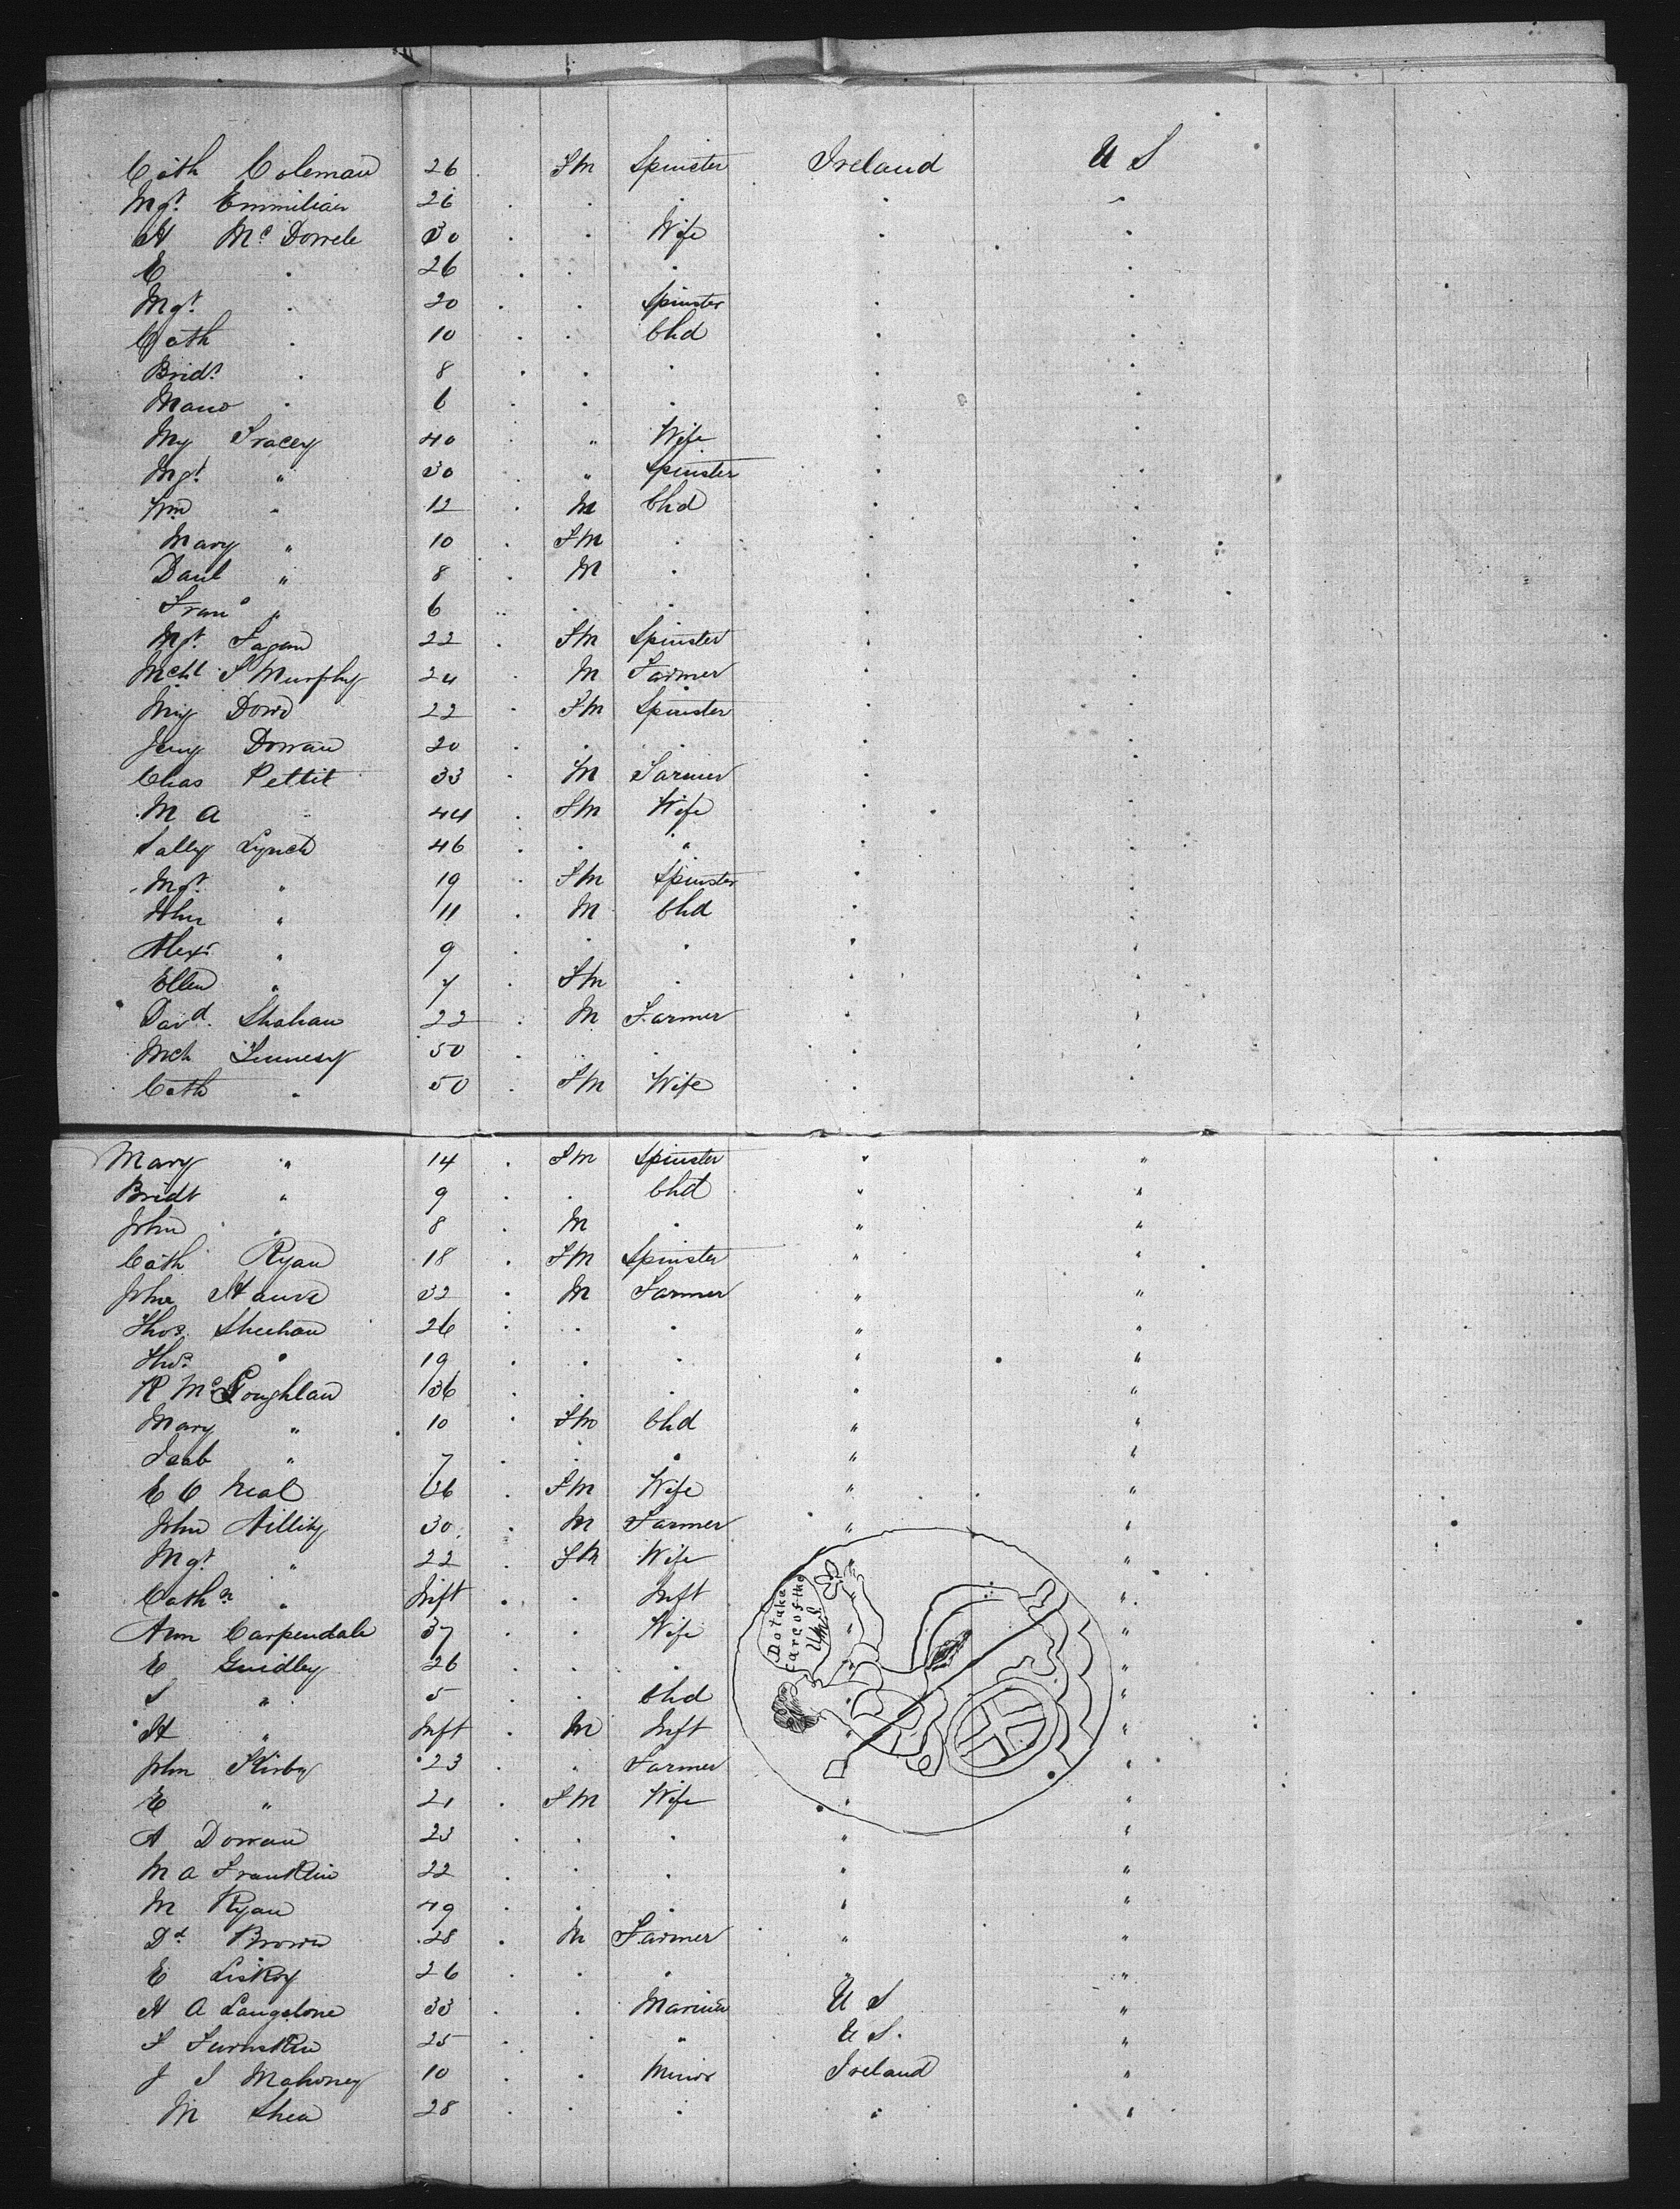 Cath Coleman 26 . Fm Spinster Ireland U S
Mgt. 26 . . . . "
Mc 30 . . Wife . .
E . 26 . . . . .
Mgt. . 20 . . Spinster . .
Cath . 10 . . Chd . .
Bridt . 8 . . . . .
. 6 . . . . .
My Tracey 40 . " Wife . .
Mgt " 30 . " Spinster . .
Wm " 12 . M Chd . .
Mary " 10 . Fm . . .
Danl " 8 . M . . .
Frans " 6 . . . . .
Mgt. Fagan 22 . Fm Spinster . .
Mchl Murphy 24 . M Farmer . .
My Dowd 22 . Fm Spinster . .
Jeny Dorran 20 . . . . .
Chas Pettit 33 . M Farmer . .
M A " 44 . Fm Wife . .
Sally Lynch 46 . . " . .
Mgt. " 19 . Fm Spinster . .
John " 11 . M Chd . .
Alexr " 9 . . . . .
Ellen " 7 . Fm . . .
Davd. Shahan 22 . M Farmer . .
Mch 50 . . . . .
Cath " 50 . Fm Wife . .
Mary " 14 . Fm Spinster " "
Bridt " 9 . . Chd " "
John " 8 . M . " "
Cath Ryan 18 . Fm Spinster " "
John 32 . M Farmer " "
Thos. Sheehan 26 . . . " "
Thos. " 19 . . . " "
R McLoughlan 36 . . . " "
Mary " 10 . Fm Chd " "
Isab " 7 . . " " "
E O Neal 36 . Fm Wife " "
John 30 . M Farmer " "
Mgt. " 22 . Fm Wife " "
Cathn " Inft . . Inft " "
Ann Carpendale 37 . . Wife " "
Do take
care of the
E 26 . . . " "
S " 5 . . Chd " "
H " Inft . M Inft " "
John Kirby 23 . " Farmer "
E " 21 . Fm Wife " "
A Dorran 23 . . . " "
M A Franklin 22 . . . " "
M Ryan 49 . . . " "
Dd Brown 28 . M Farmer " "
E 26 . . . " "
H A Langstone 33 . . Mariner U S "
F 25 . . " U S. "
J Mahoney 10 . . Minor Ireland "
M Shea 28 . . . " "